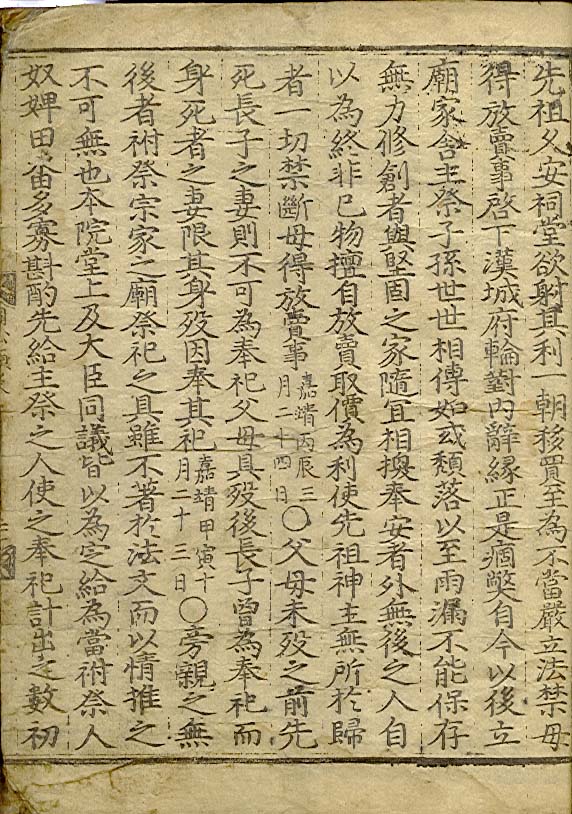 先祖久安祠堂欲射其利一朝移買至為不當嚴立法禁毋
得放賣事啓下漢城府輪對內辭緣正是痼弊自今以後立
廟家舍主祭子孫世世相傳如或頹落以至雨漏不能保存
無力修創者與堅固之家隨宜相換奉安者外無後之人自
以為終非已物擅自放賣取價為利使先祖神主無所於歸
者一切禁斷毋得放賣事嘉靖丙辰三月二十四日○父母未歿之前先
死長子之妻則不可為奉祀父母具歿後長子曾為奉祀而
身死者之妻限其身歿因奉其祀嘉靖甲寅十月二十三日○旁親之無
後者祔祭宗家之廟祭祀之具雖不著於法文而以情推之
不可無也本院堂上及大臣同議皆以為定給為當祔祭人
奴婢田畓多寡斟酌先給主祭之人使之奉祀計出之數初